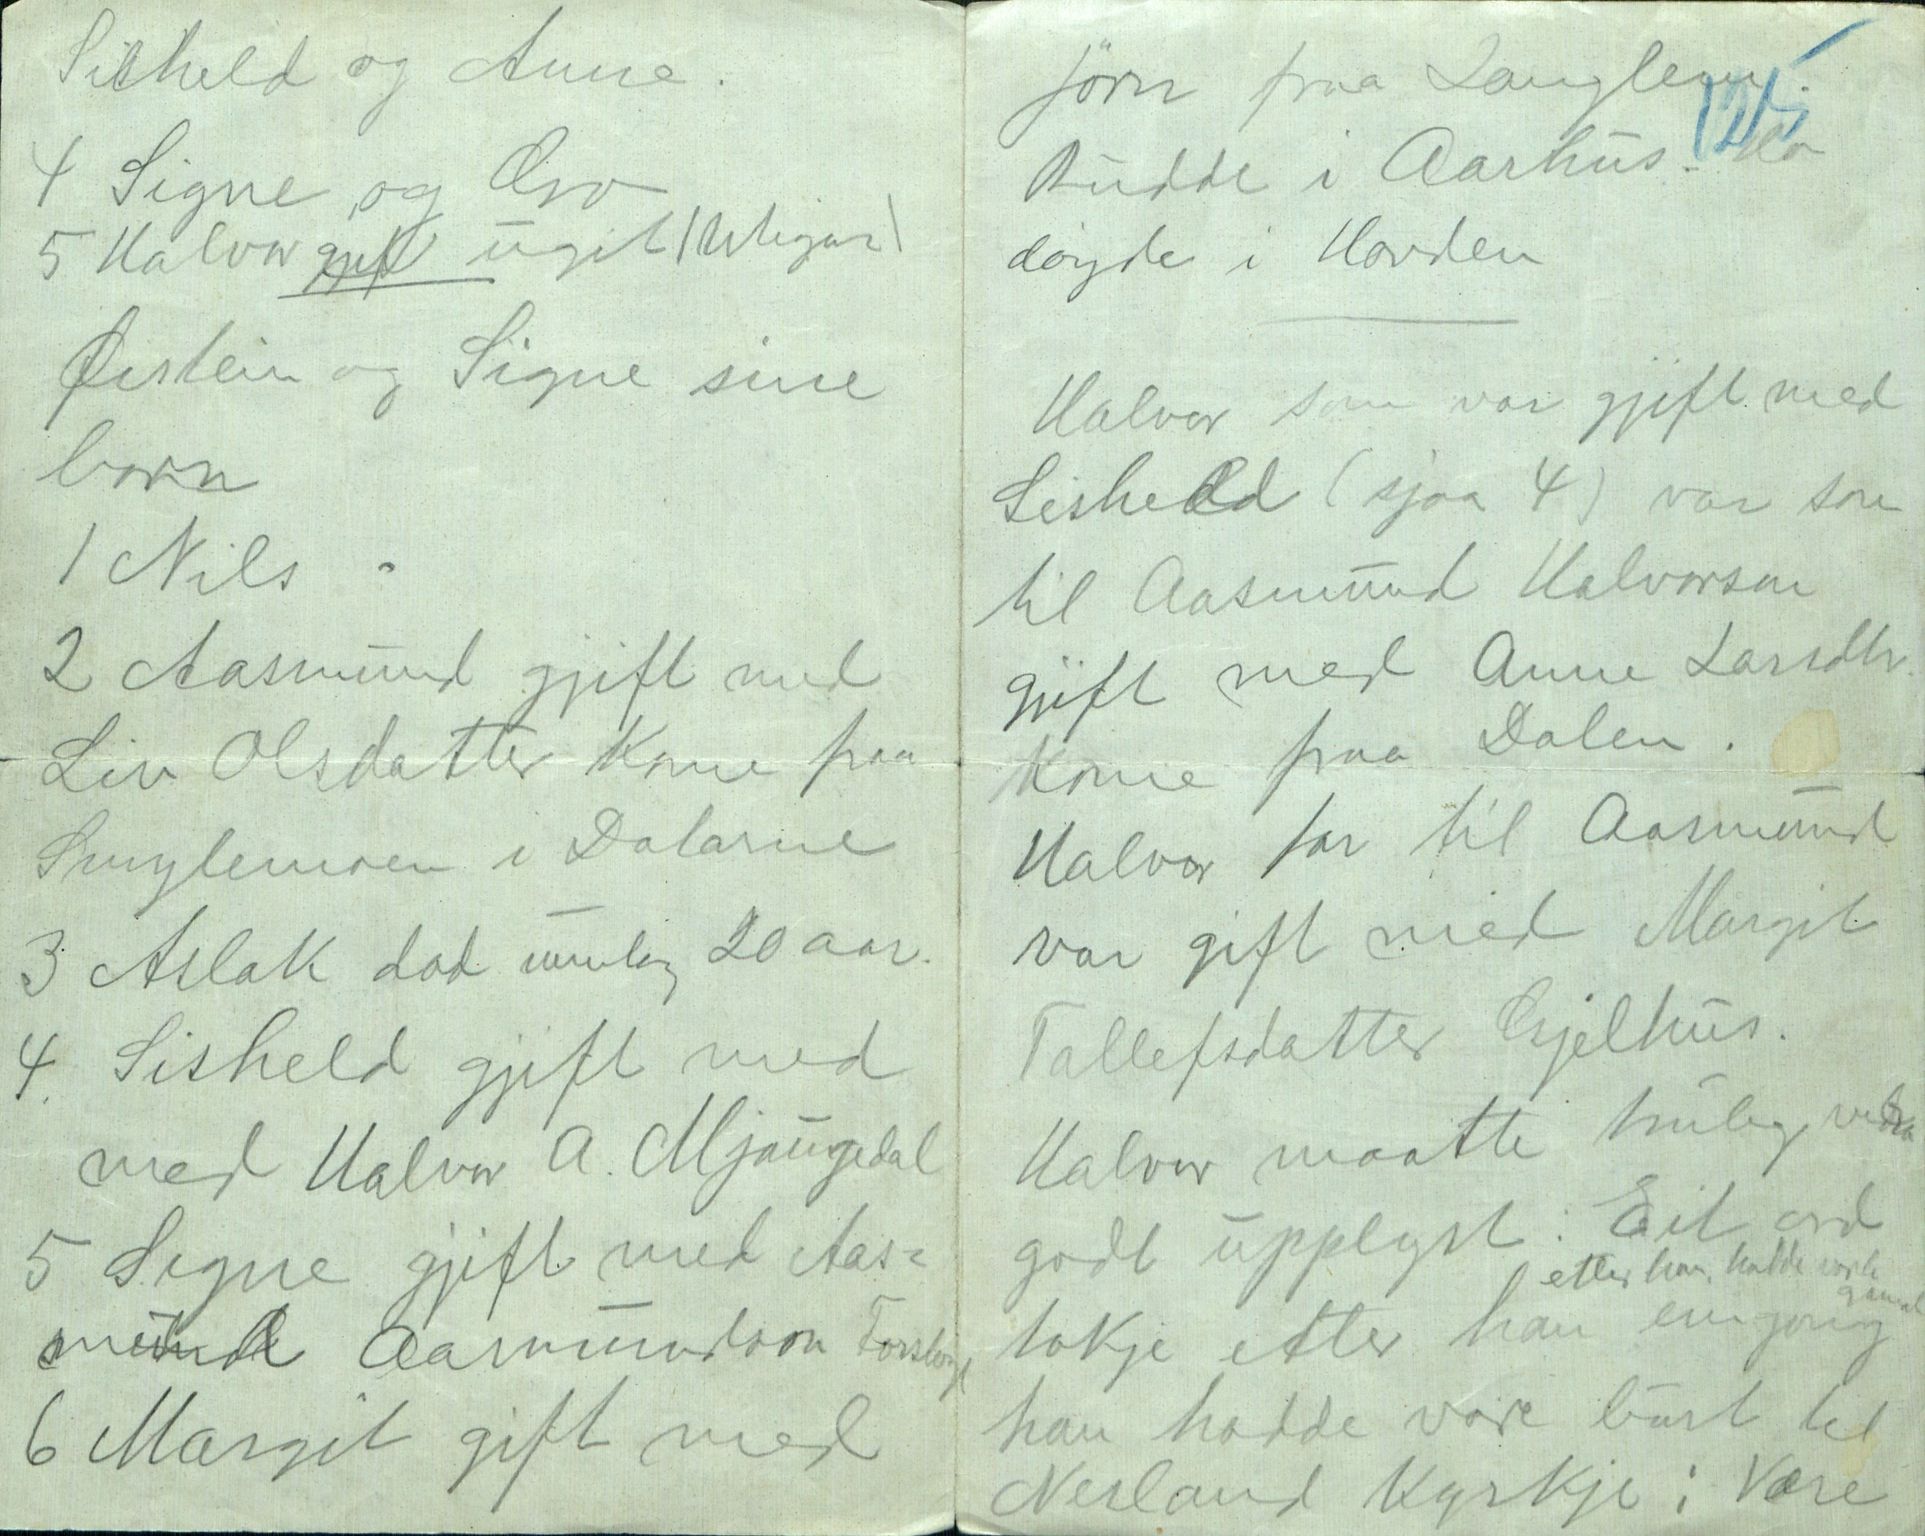 Sisheld og Anne.
4 Signe og
5 Halvor gift ugift
Øistein og Signe sine
born
1 Nils
2 Aasmund gjift med
Liv Olsdatter kome fraa
i Dalarne
3 Aslak død umlag 20 aar.
4. Sisheld gjift med
med Halvor A. Mjaugedal
5 Signe gjift med Aas=
mund Aasmundson
6 Margit gift med
Jörn fraa
125
Budde i Aarhus. Ho
döyde i Hovden
Halvor som var gjift med
Sisheld (sjaa 4) var son
til Aasmund Halvorson
gjift med Anne Larsdtr.
kome fraa Dalen.
Halvor far til Aasmund
var gift med Margit
Tallefsdatter Gjelhus.
Halvor maatte truleg
godt upplyst: Eit ord
etter han hadde
gamal
tokje etter han eingong
han hadde vore burt til
Nesland Kyrkje: Være